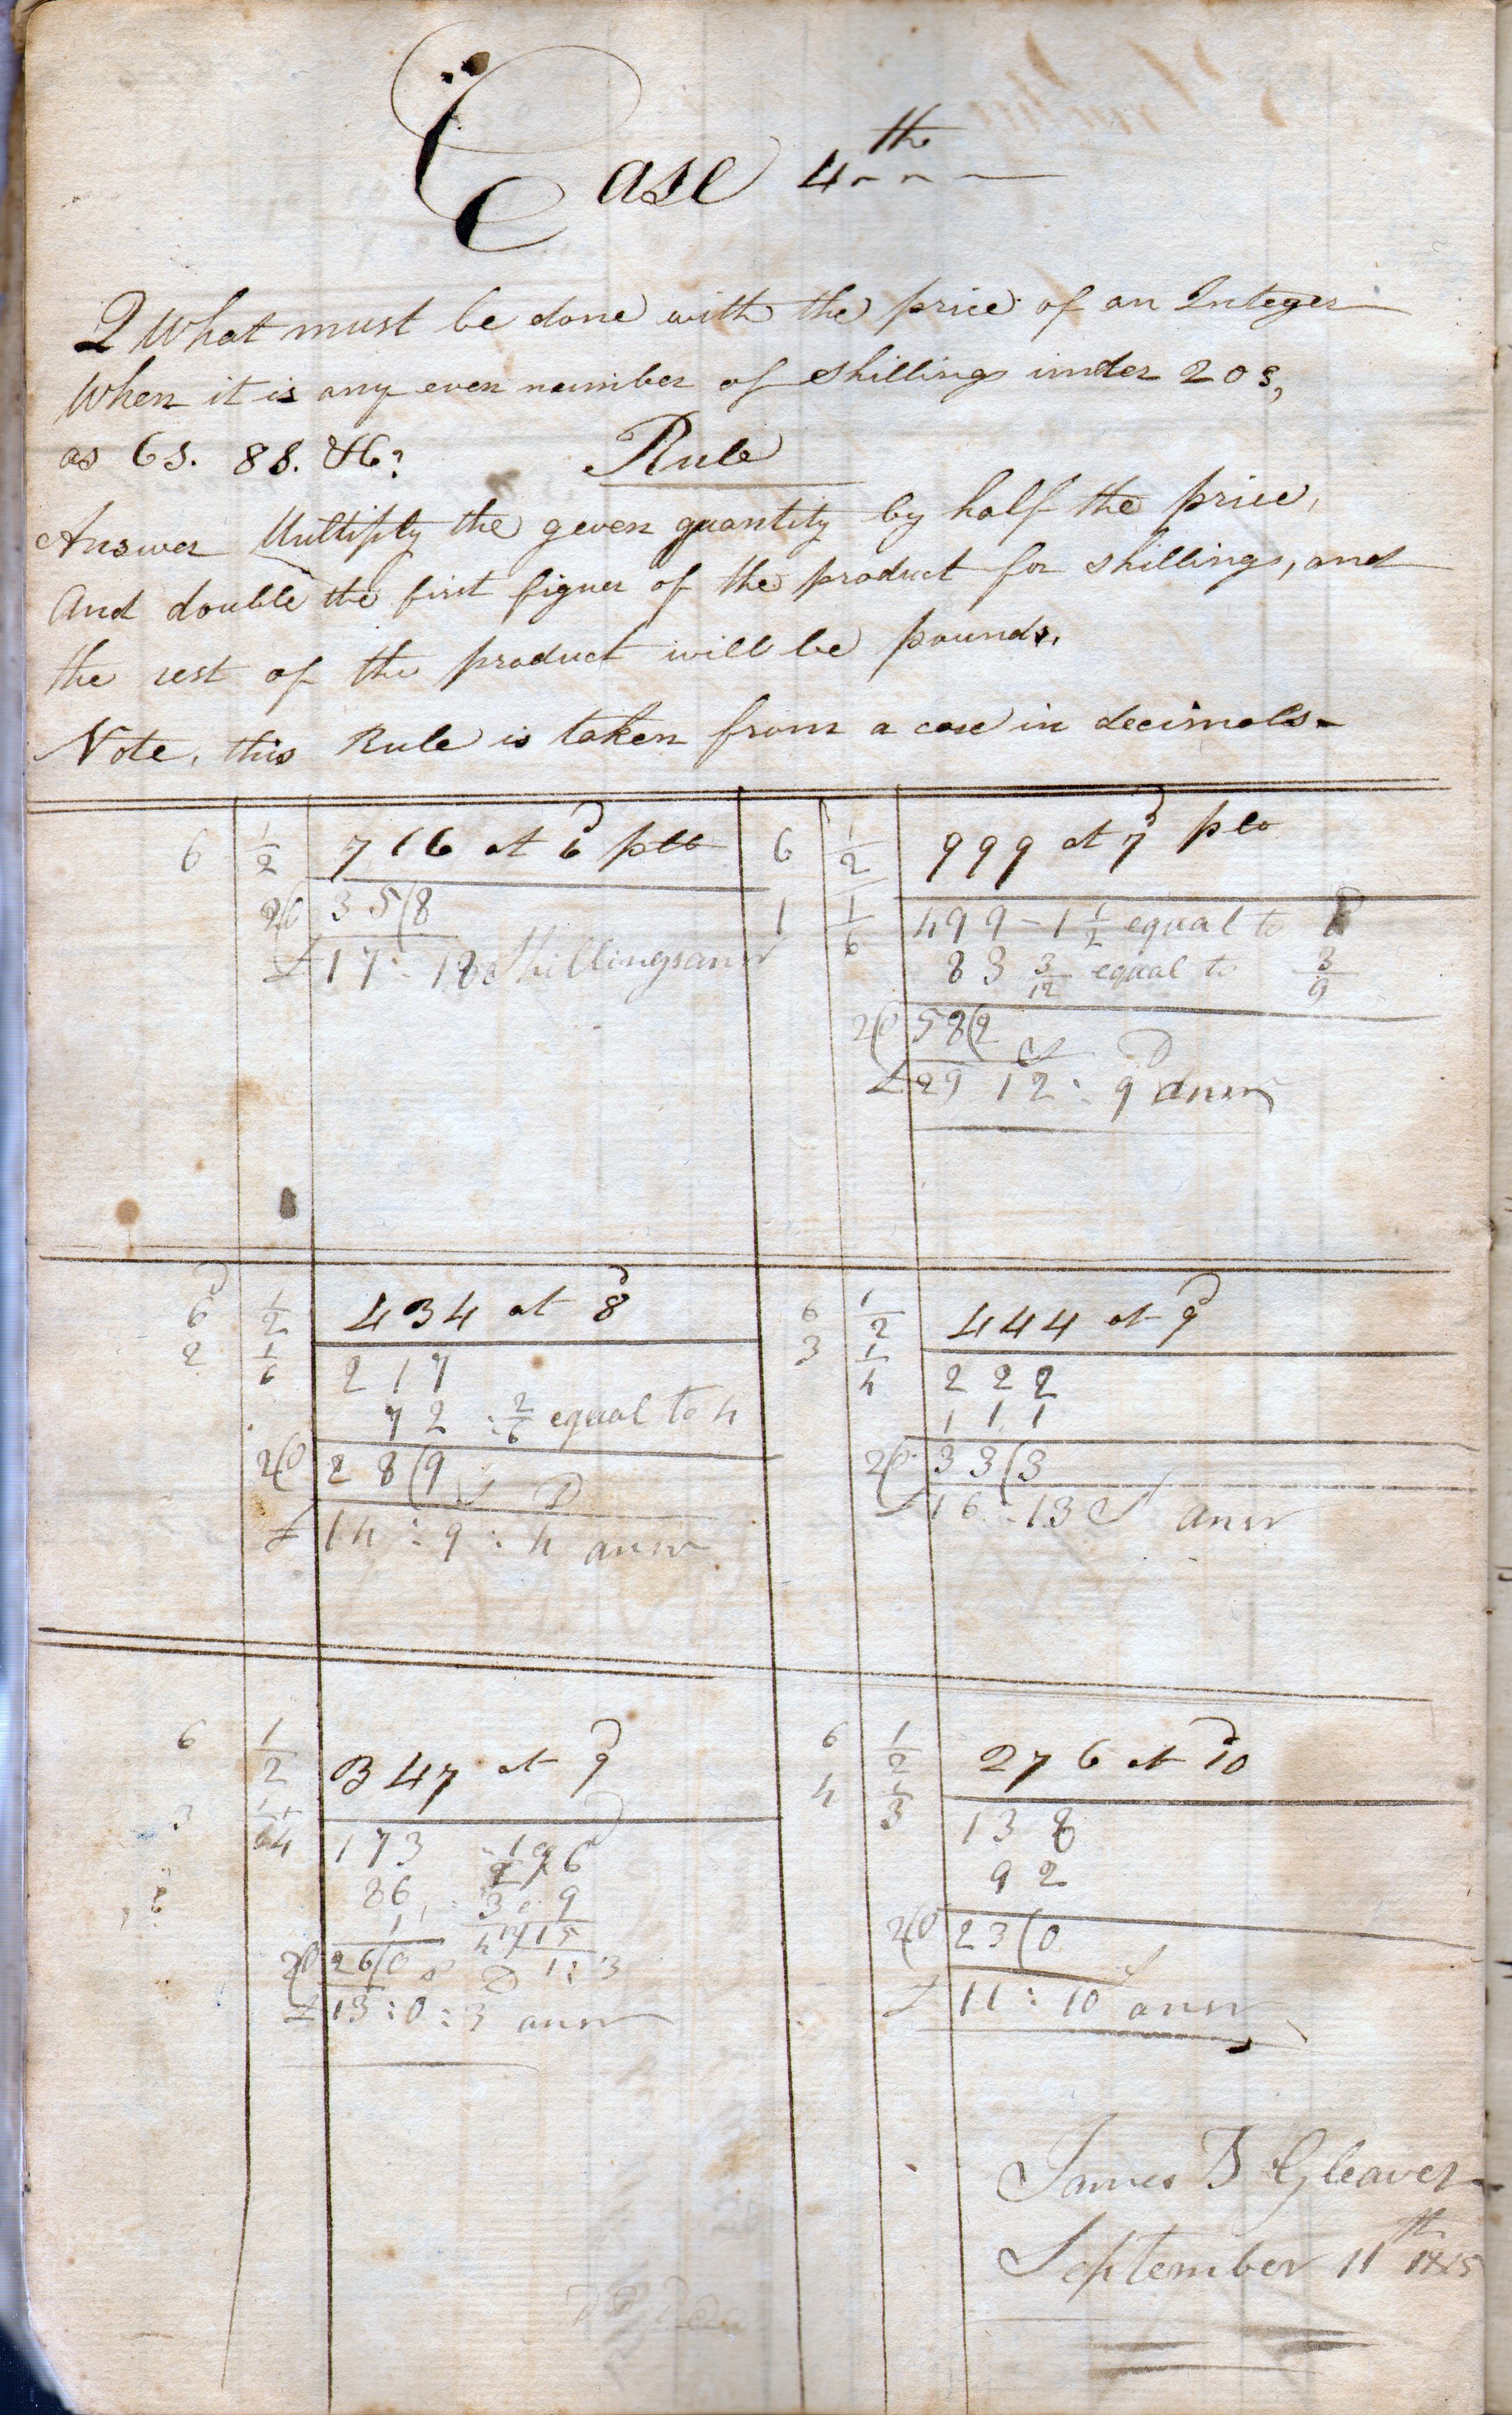 Case 4th
Q What must be done with the price of an Integer
When it is any even number of shillings under 20s,
as 6s. 8s. &c?
Rule
Answer Multiply the geven quantity by half the price,
And double the first figuer of the product for shillings, and
the rest of the product will be pounds.
Note, this Rule is taken from a case in decimals-
6 1/2 716 at 6d
20 35(8
£ 17:18 Shillings answ
6 1/2 999 at 7d
1 1/6 499-1 1/2 equal to
83 3/12 equal to
20 58(2
S D
£29 12:9 answ
6d 1/2 434 at 8d
2 1/6 217
72 : 2/6 equal to 4
20 28(9
S D
£ 14:9:4 answ
6 1/2 444 at 9d
3 1/4 222
111
20 33(3
£ 16:13 S answ
6 1/2 347 at 9d
3 1/4 173
86
1
20 26(0
1:3
£ 13:0:3 answ
6 1/2 276 at 10d
4 1/3 138
92
20 23(0
£ 11:10 answ
James B Gleaver
September 11th